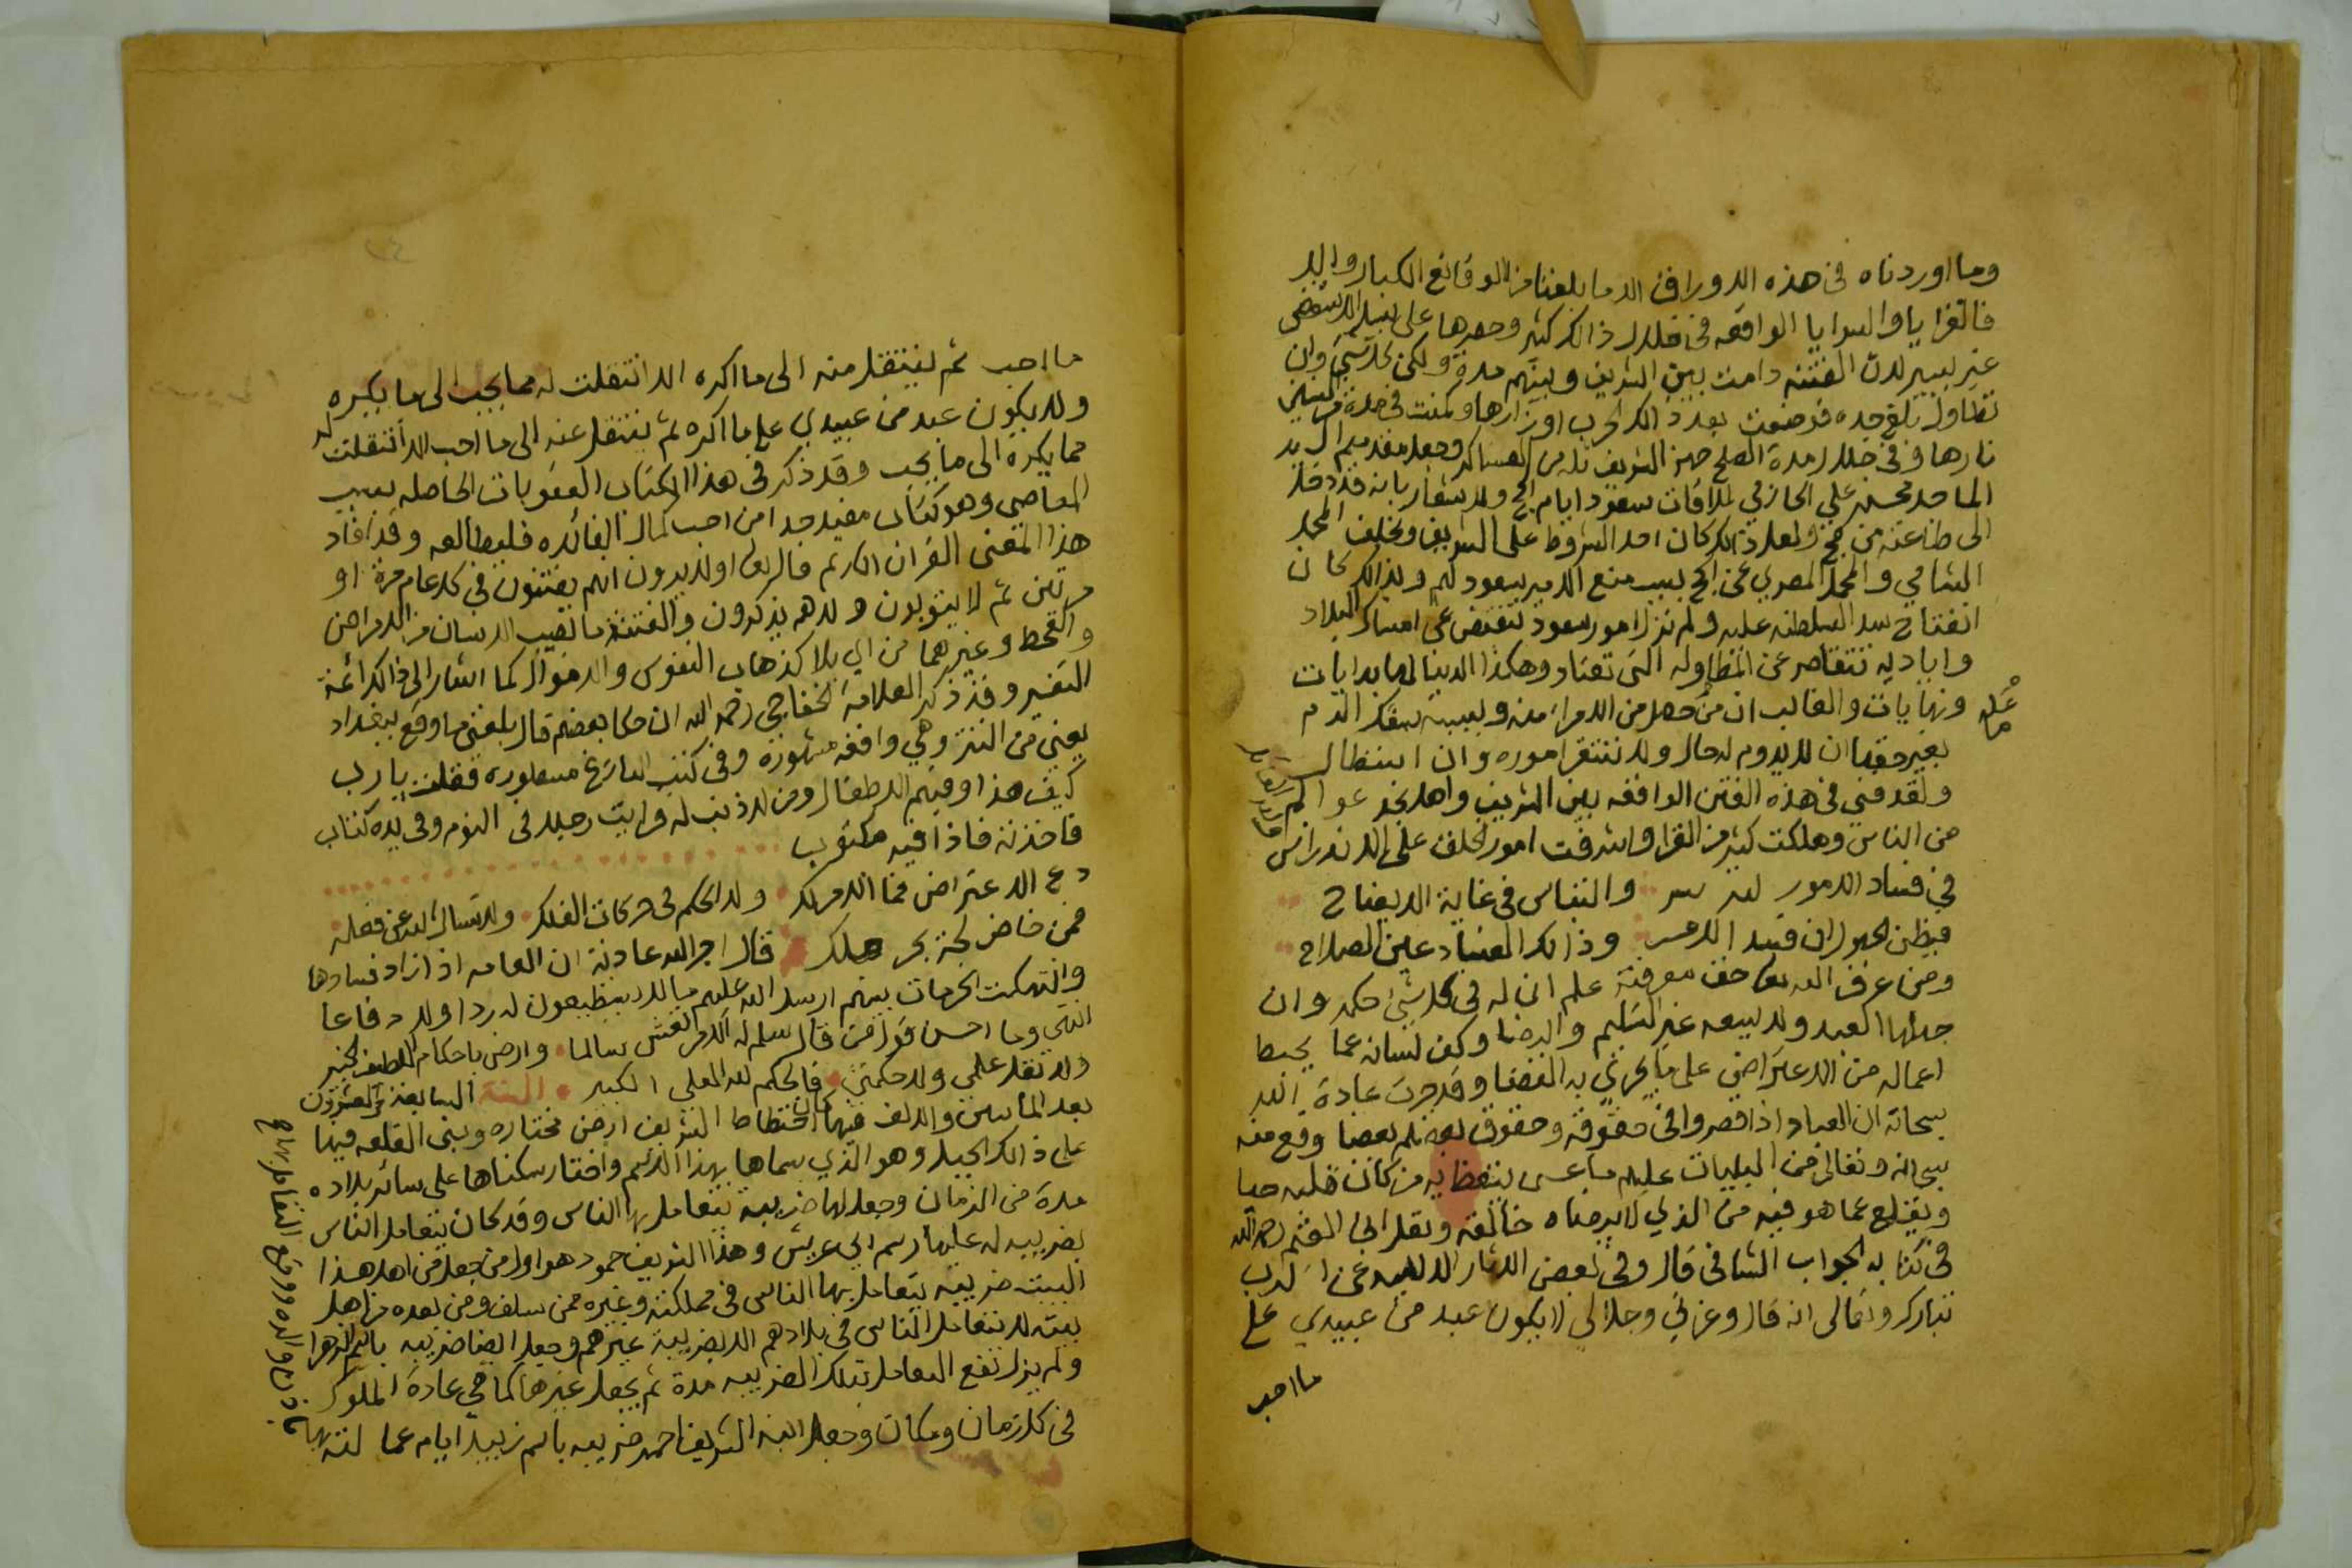 وما اوردناه في هذه الاوراق الا ما بلغنا من الوقائع الكبار والا
فالغزايا والسرايا الواقعه في خلال ذالك كثير وحصرها على سبيل الاستقصى
غير يسير لان الفتنه دامت بين الشريف وبينهم مدة ولكن كل شيئ وان
تطاول بلغ حده فوضعت بعد ذالك الحرب اوزارها وسكنت في مدة من السنين
نارها وفي خلال مدة الصلح جهز الشريف ثله من العساكر وجعل مقدمهم
الماجد محسن علي الحازمي لملاقات سعود ايام الحج ولاستشعار بانه قد دخل
الى طاعته من حج ولعل ذالك كان احد الشروط على الشريف وتخلف المحمل
الشامي والمحمل المصري عن الحج بسبب منع الامير سعود لهم وبذالك كان
انفتاح سد السلطنه عليه ولم تزل امور سعود تنقص عن امساك البلاد
واياديه تتقاصر عن المطاوله التي تعتاد وهكذا الدنيا لها بدايات
ونهايات والغالب ان من حصل من الامرا منه وبسببه سفك الدم
بغير حقها ان لا يدوم له حال ولا تستقر اموره وان استطال
ولقد فني في هذه الفتن الواقعه بين الشريف واهل نجد عوالم
من الناس وهلكت كثير من القرا واشرفت امور الخلق على الاندراس
في فساد الامور لله سر والتباس في غاية الايضاح
فيظن الجهول ان فسد الامر وذالك الفساد عين الصلاح
ومن عرف الله تعالى حق معرفته علم ان له في كل شيئ حكمه وان
جهلها العبد ولا يسعه غير التسليم والرضا وكف لسانه عما يحبط
اعماله من الاعتراض على ما يجري به القضا وقد جرت عادة الله
سبحانه ان العباد اذا قصروا في حقوقه وحقوق بعضهم بعضا وقع منه
سبحانه وتعالى من البليات عليهم ما عسى يتعظ به من كان قلبه حيا
ويقلع عما هو فيه من الذي لا يرضاه خالقه ونقل ابن القيم رحمه الله
في كتابه الجواب الشافي قال وفي بعض الاثار الالهيه عن الرب
تبارك وتعالى انه قال وعزتي وجلالي لا يكون عبد من عبيدي على
ما احب
ما احب ثم ينتقل منه الى ما اكره الا انتقلت له مما يحب الى ما يكره
ولا يكون عبد من عبيدي على ما اكره ثم ينتقل عنه الى ما احب الا انتقلت له
مما يكره الى ما يحب وقد ذكر في هذا الكتاب العقوبات الحاصله بسبب
المعاصي وهو كتاب مفيد جدا من احب كمال الفائده فليطالعه وقد افاد
هذا المعنى القران الكريم قال تعالى اولا يرون انهم يفتنون في كل عام مرة او
مرتين ثم لا يتوبون ولا هم يذكرون والفتنة ما تصيب الانسان من الامراض
والقحط وغيرهما من اي بلا كذهاب النفوس والاموال كما اشار الى ذالك ائمة
التفسير وقد ذكر العلامة الخفاجي رحمه الله ان حكا بعضهم قال بلغني ما وقع ببغداد
يعني من التتر وهي واقعه مشهورة وفي كتب التاريخ مسطورة فقلت يا رب
كيف هذا وفيهم الاطفال ومن لا ذنب له فرايت رجلا في النوم وفي يده كتاب
فاخذته فاذا فيه مكتوب
دع الاعتراض فما الامر لك ولا الحكم في حركات الفلك ولا تسال الله عن فعله
فمن خاض لجة بحر هلك قال اجر الله عادته ان العامه اذا زاد فسادها
وانتهكت الحرمات بينهم ارسل الله عليهم ما لا يستطيعون له ردا ولا دفاعا
انتهى وما احسن قول من قال سلم له الامر تعش سالما وارض باحكام اللطيف الخبير
ولا تقل علمي ولا حكمتي فالحكم لله العلي الكبير السنة السابعة والعشرون
بعد المأتين والالف فيها كان اختطاط الشريف ارض مختاره وبنى القلعه فيها
على ذالك الجبل وهو الذي سماها بهذا الاسم واختار سكناها على سائر بلاده
مدة من الزمان وجعل لها ضريبه يتعامل بها الناس وقد كان يتعامل الناس
بضريبه له عليها رسم ابي عريش وهذا الشريف حمود هو اول من جعل من اهل هذا
البيت ضريبه يتعامل بها الناس في مملكته وغيره ممن سلف ومن بعده من اهل
بيته لا يتعامل الناس في بلادهم الا بضريبة غيرهم وجعل ايضا ضريبه باسم الزهرا
ولم يزل تقع المعامله بتلك الضريبه مدة ثم يجعل غيرها كما هي عادة الملوك
في كل زمان ومكان وجعل ابنه الشريف احمد ضريبه باسم زبيد ايام عمالته بها
باذن والده ووقع التعامل بها